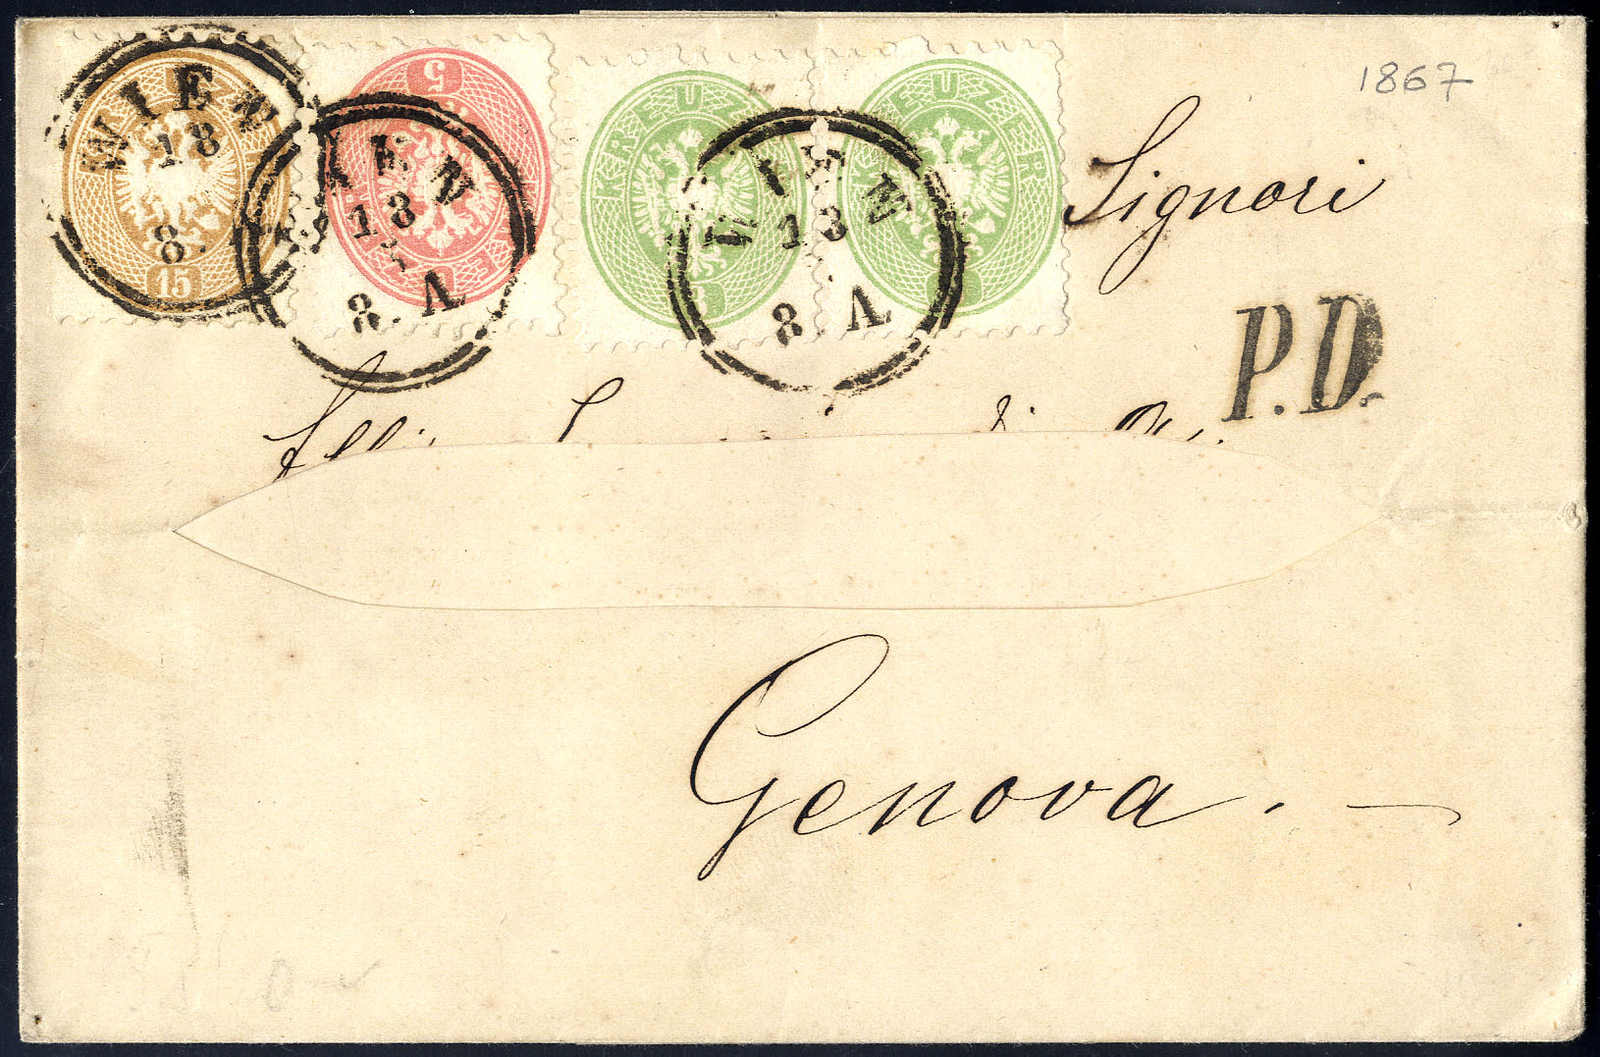 1867
15
5
KREUZER
KREUZER
WIEN
18
8.
WIEN
18
8. A
WIEN
13
8. A
Signori
P.D.
Genova.